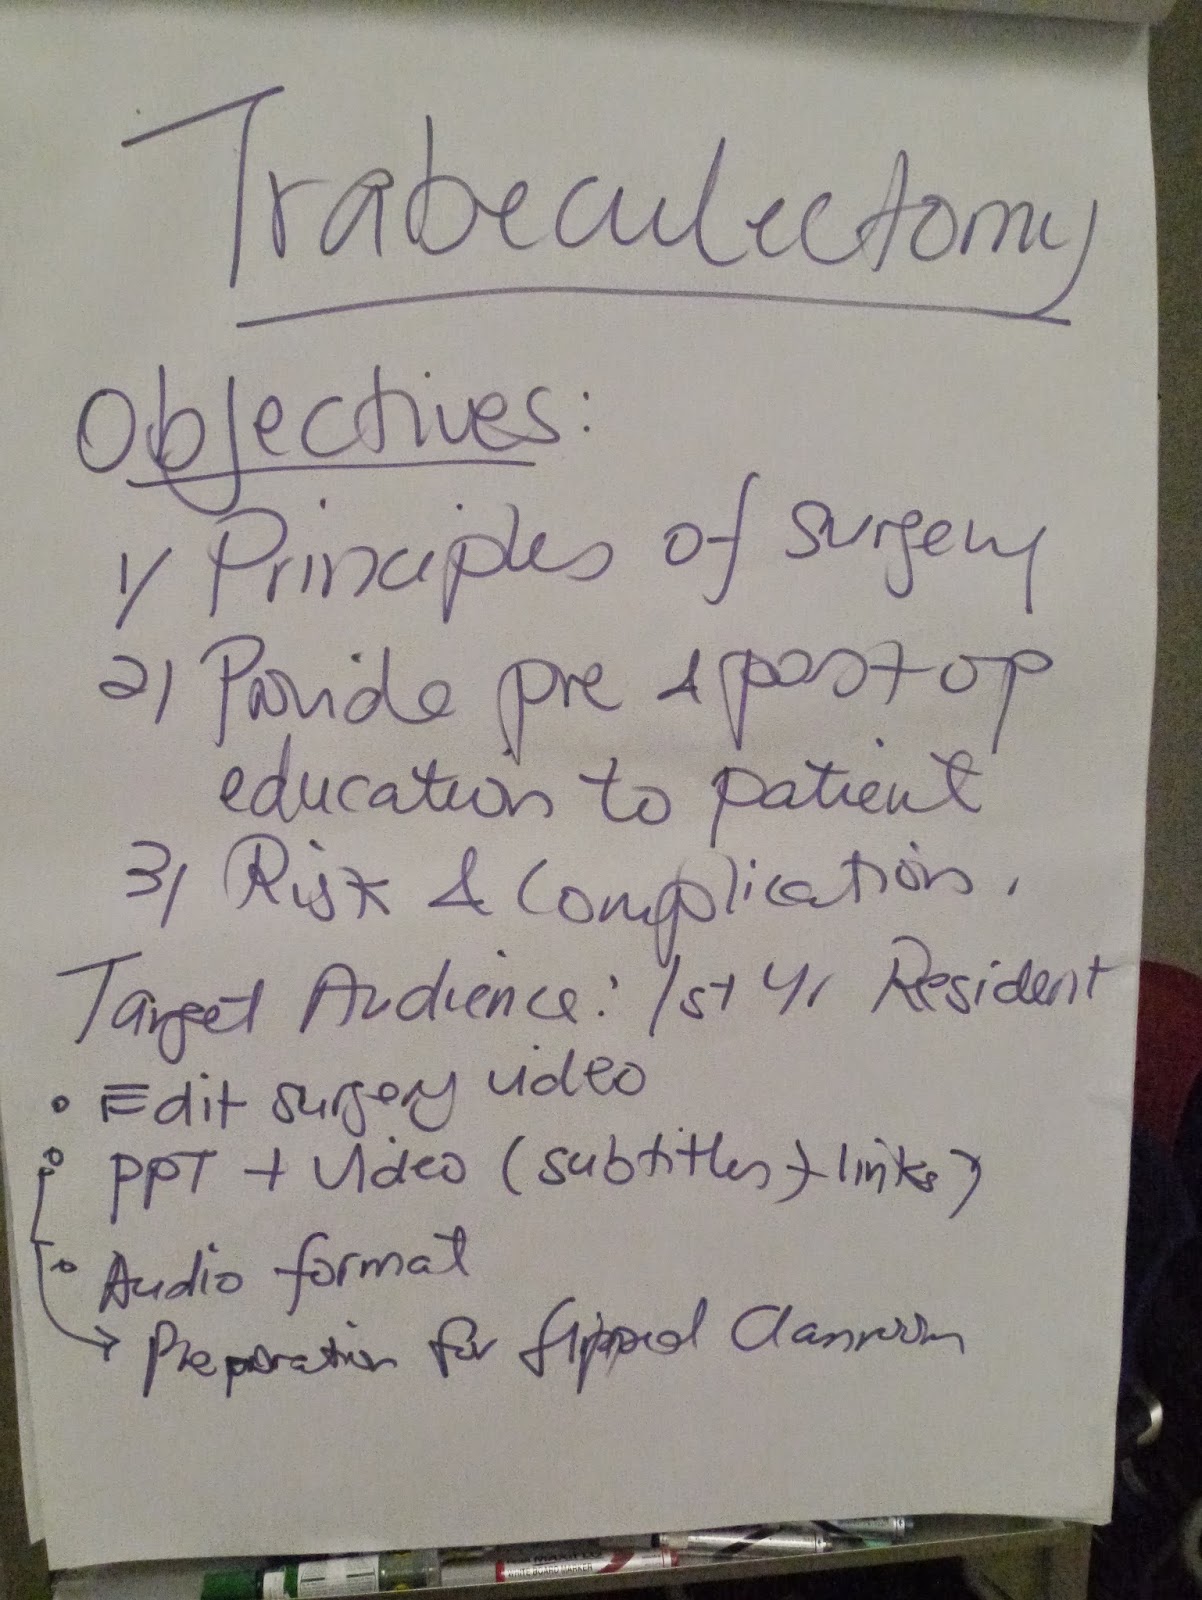 Trabeculectomy
Objectives:
1/ Principles of surgery
2) Provide pre & post op
education to patient
3) Risk & Complication.
Target Audience: 1st Yr Resident
• Edit surgery video
• PPT + Video (subtitles + links)
• Audio format
→ Preparation for flipped Classroom
WHITE BOARD MARKER